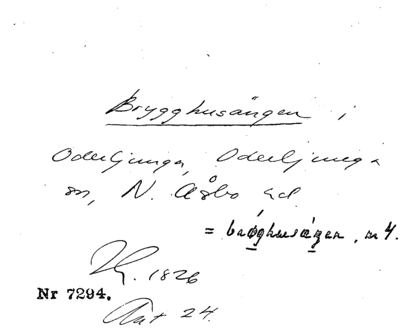 Brygghusängen i
Oderljunga, Oderljunga
sn, N. Åsbo hd
= brøghusæŋen, m 4.
1826
Nr 7294.
Akt 24